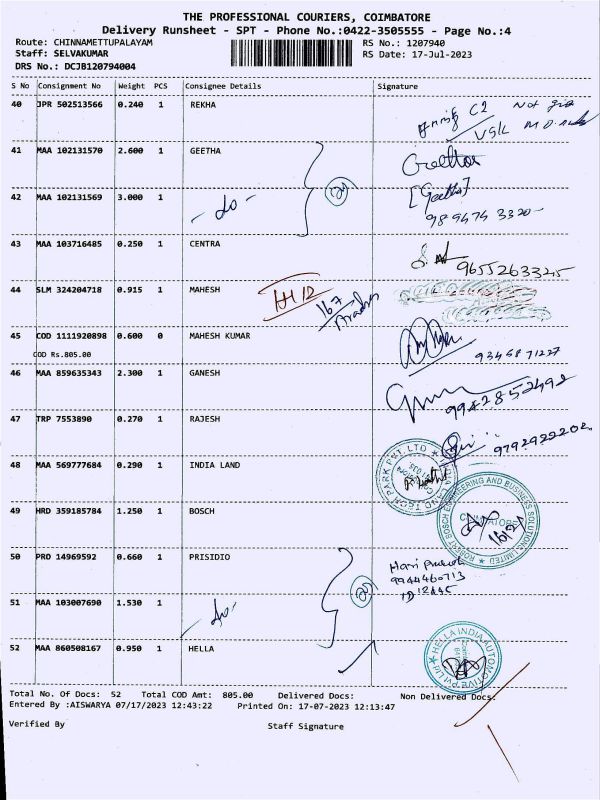 THE PROFESSIONAL COURIERS, COIMBATORE
Delivery Runsheet - SPT - Phone No.:0422-3505555 - Page No.:4
Route: CHINNAMETTUPALAYAM RS No.: 1207940
Staff: SELVAKUMAR RS Date: 17-Jul-2023
DRS No.: DCJB120794004
S No Consignment No Weight PCS Consignee Details Signature
40 JPR 502513566 0.240 1 REKHA
C2 Not
VSK
41 MAA 102131570 2.600 1 GEETHA Geetha
42 MAA 102131569 3.000 1 - do - [Geetha]
989474 3320
43 MAA 103716485 0.250 1 CENTRA 9655263325
44 SLM 324204718 0.915 1 MAHESH
167
45 COD 1111920898 0.600 0 MAHESH KUMAR
COD Rs.805.00 9345871227
46 MAA 859635343 2.300 1 GANESH
9942852492
47 TRP 7553890 0.270 1 RAJESH 9792922202
48 MAA 569777684 0.290 1 INDIA LAND
INDIA LAND TECH PARK PVT LTD
49 HRD 359185784 1.250 1 BOSCH
ROBERT BOSCH ENGINEERING AND BUSINESS SOLUTIONS LIMITED
COIMBATORE
50 PRO 14969592 0.660 1 PRISIDIO Hari
9944460713
ID 12445
51 MAA 103007690 1.530 1 - do -
52 MAA 860508167 0.950 1 HELLA
HELLA INDIA AUTOMOTIVE PVT LTD
Total No. Of Docs: 52 Total COD Amt: 805.00 Delivered Docs: Non Delivered Docs:
Entered By :AISWARYA 07/17/2023 12:43:22 Printed On: 17-07-2023 12:13:47
Verified By Staff Signature